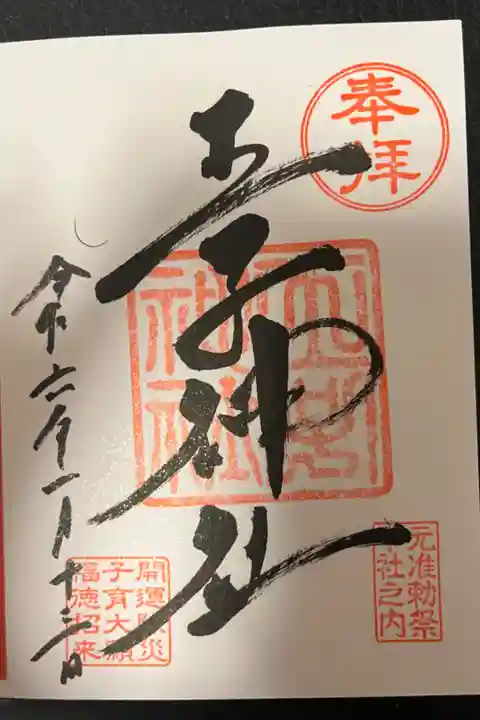 奉拝
王子神社
王子
神社
元准勅祭
十社之内
令和六年一月十三日
開運除災
子育大願
福徳招来